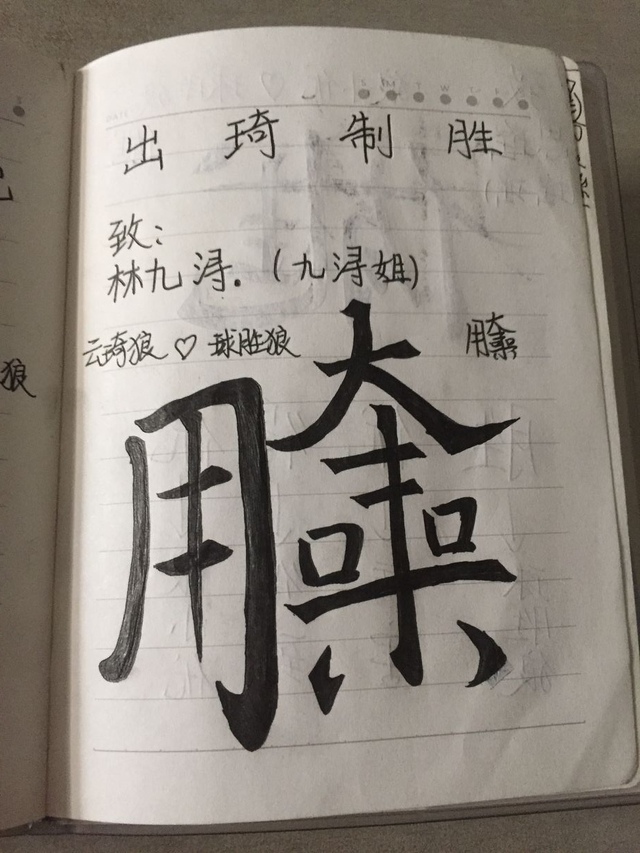 出琦制胜
致:
林九浔.(九浔姐)
云琦狼♡球胜狼
狼